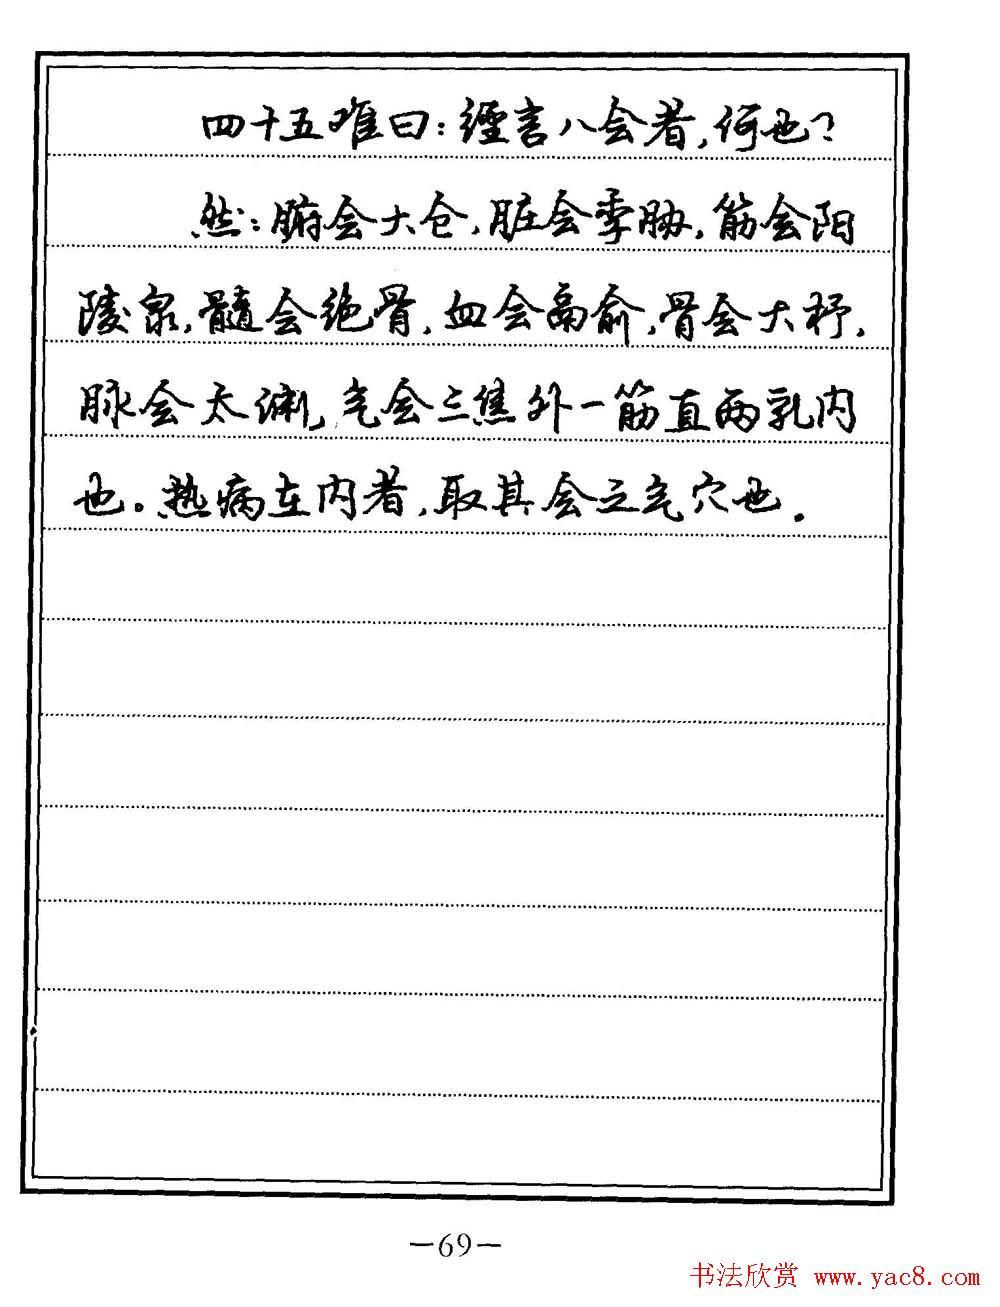 四十五难曰：經言八会者，何也？
然：腑会大仓，脏会季胁，筋会阳
陵泉，髓会绝骨，血会鬲俞，骨会大杼，
脉会太渊，气会三焦外一筋直两乳内
也。热病在内者，取其会之气穴也．
—69—
书法欣赏 www.yac8.com